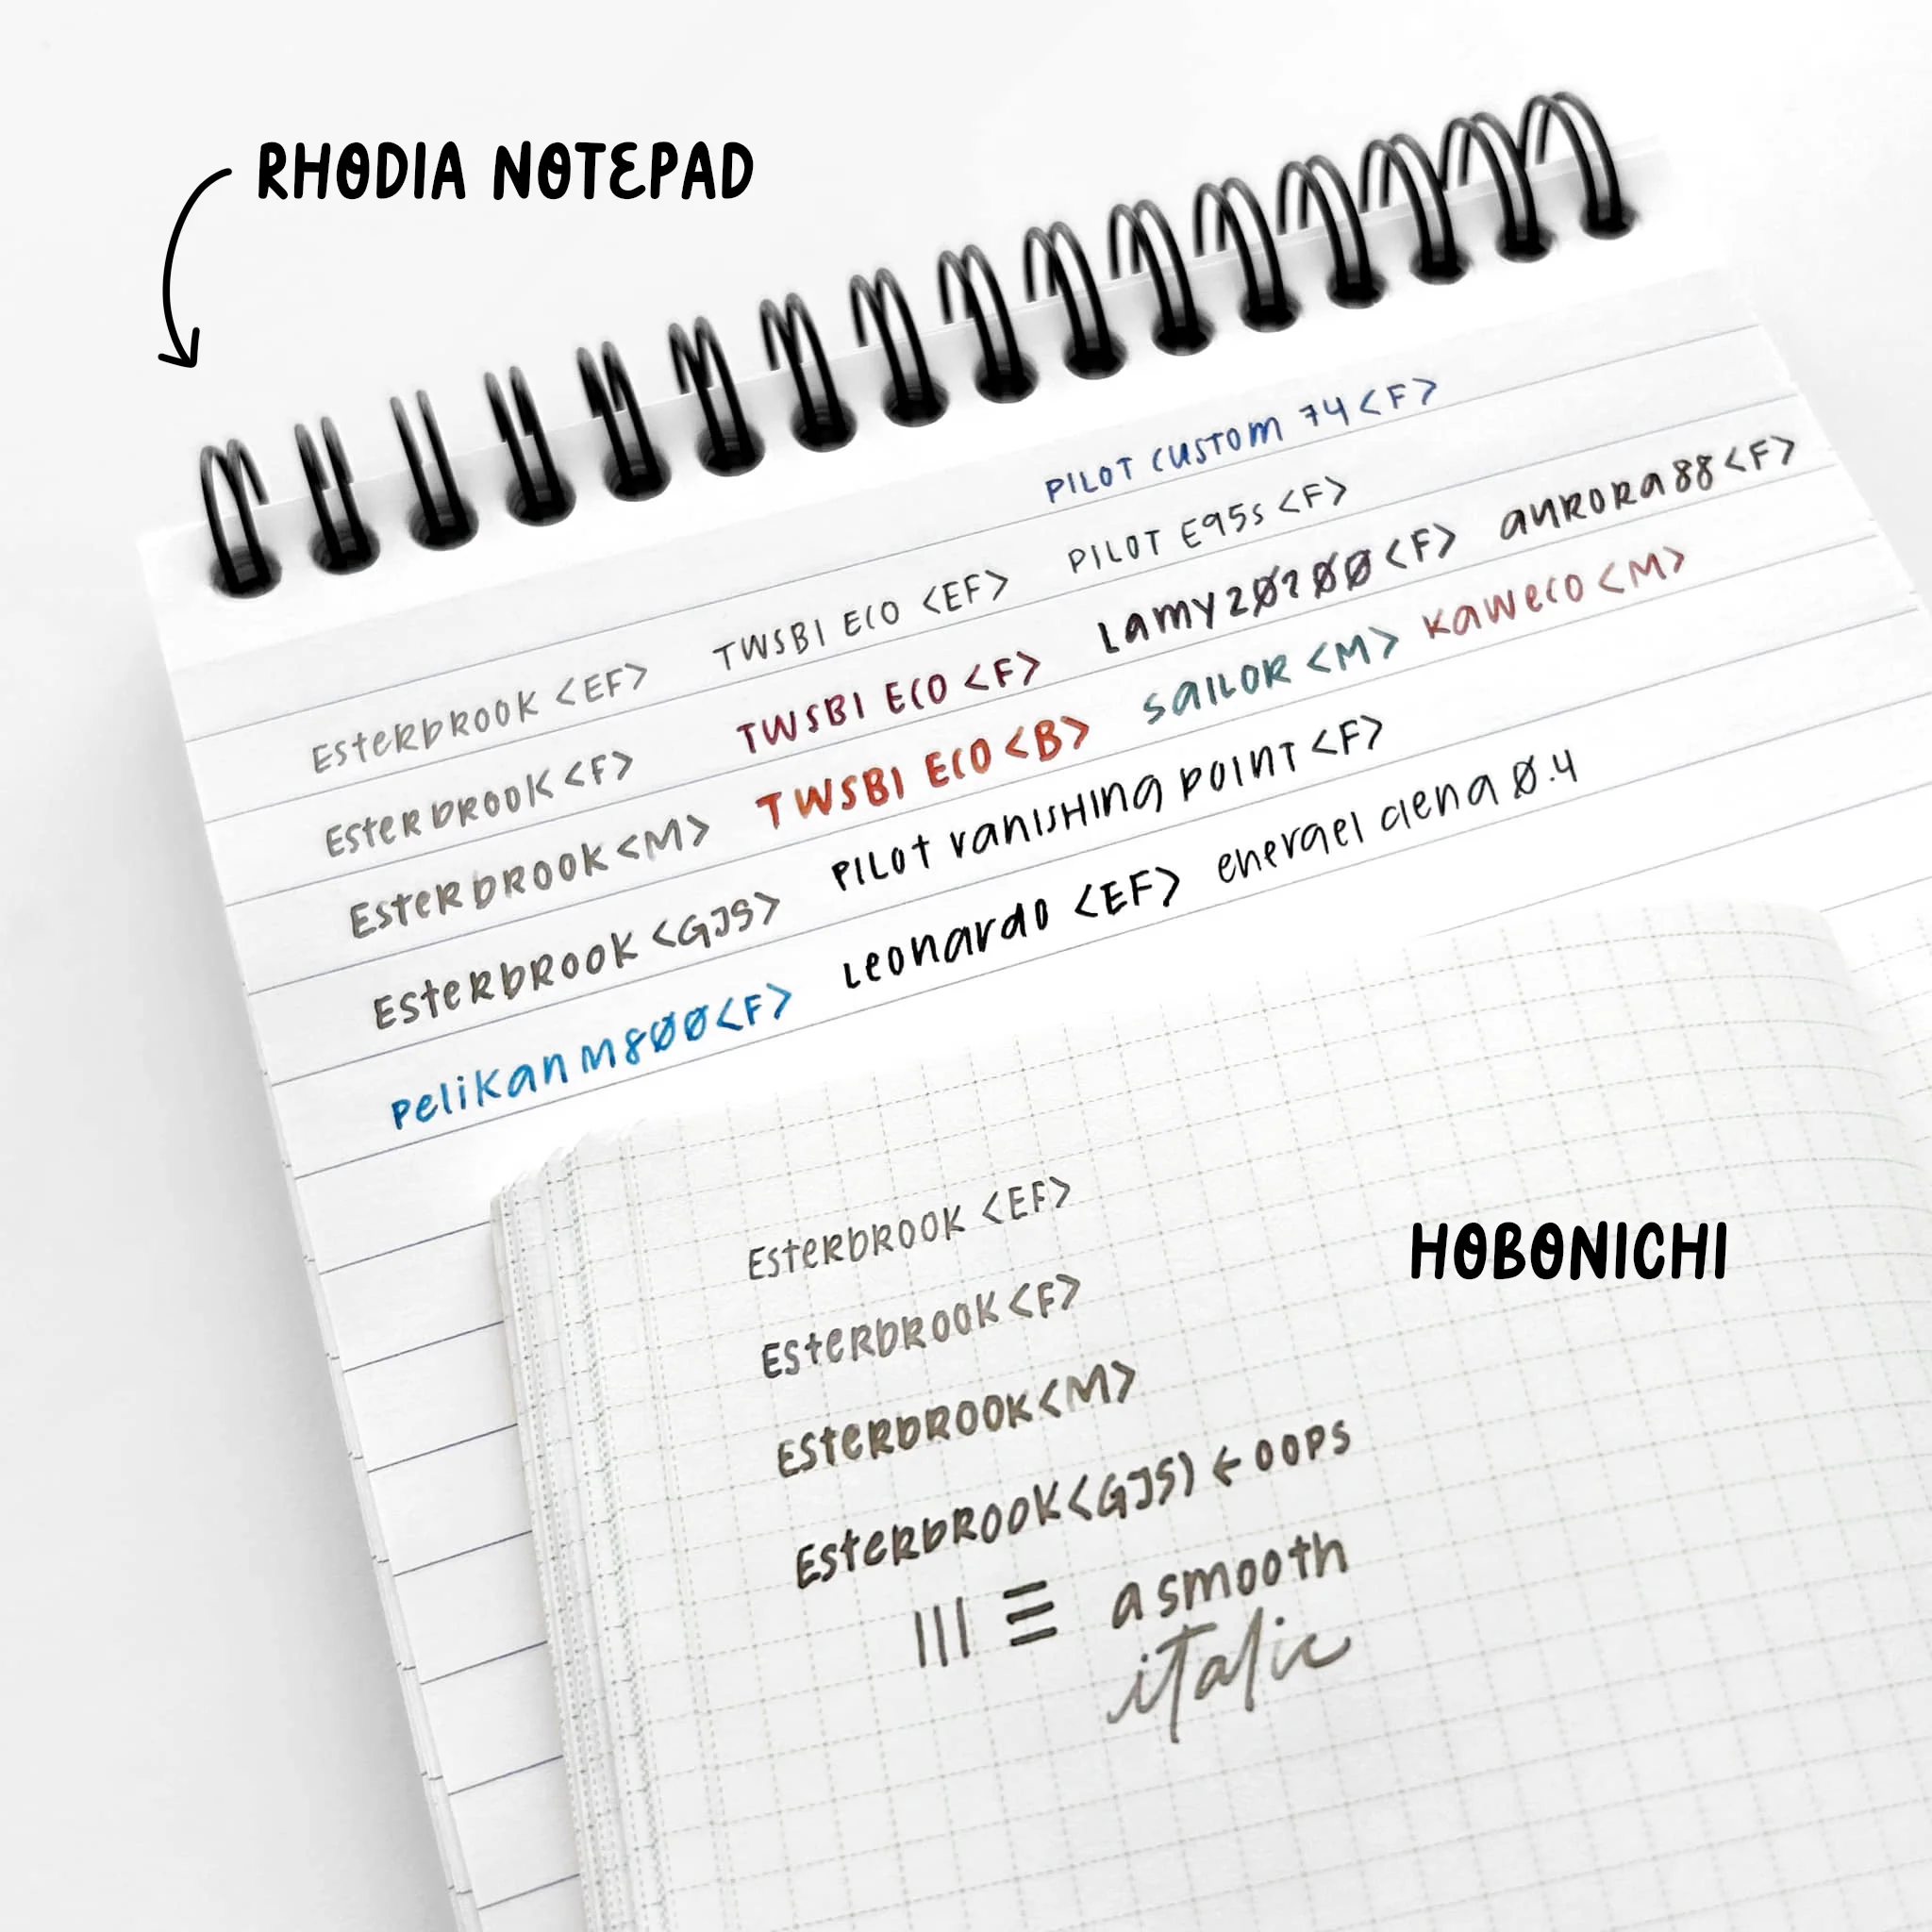 RHODIA NOTEPAD
PILOT CUSTOM 74 <F>
Esterbrook <EF> TWSBI ECO <EF> PILOT E95s <F>
Esterbrook <F> TWSBI ECO <F> Lamy 2000 <F> aurora 88 <F>
Esterbrook <M> TWSBI ECO <B> SAILOR <M> Kaweco <M>
Esterbrook <GJS> PILOT vanishing point <F>
Pelikan M800 <F> Leonardo <EF> energel clena 0.4
HOBONICHI
Esterbrook <EF>
Esterbrook <F>
Esterbrook <M>
Esterbrook <GJS) ← oops
a smooth
italic